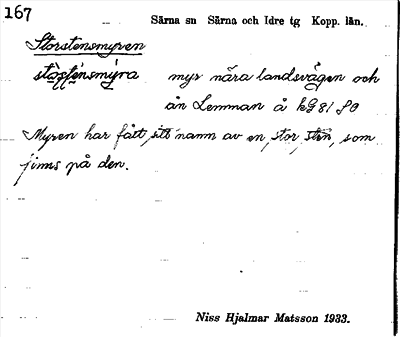 167
Särna sn Särna och Idre tg Kopp. län.
Storstensmyren
myr nära landsvägen och
ån Lemman å kG 81 f0
Myren har fått sitt namn av en stor sten, som
finns på den.
Niss Hjalmar Matsson 1933.